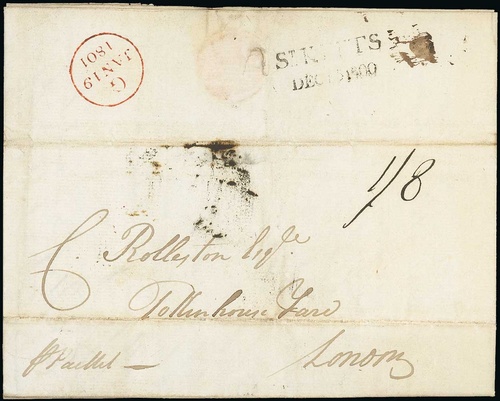 G
JAN 19
1801
ST KITTS
DEC 13 1800
1/8
C. Rolleston Esqr.
Tokenhouse Yard
London
pr Packet